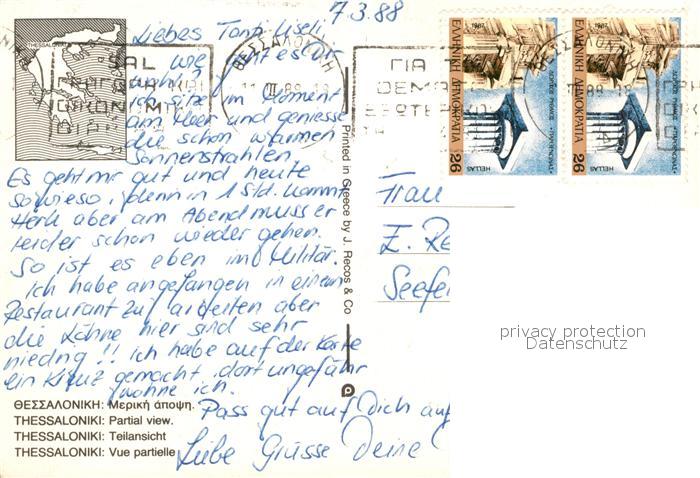 7.3.88
Liebes Tanti Useli
wie geht es dir
wohl?
Ich sitze im Moment
am Meer und geniesse
die schon warmen
Sonnenstrahlen.
Es geht mir gut und heute
sowieso, denn in 1 Std. kommt
aber am Abend muss er
leider schon wieder gehen.
So ist es eben im Militär.
Ich habe angefangen in einem
Restaurant zu arbeiten aber
die Löhne hier sind sehr
niedrig!! Ich habe auf der Karte
ein Kreuz gemacht, dort ungefähr
wohne ich.
Pass gut auf Dich auf
Liebe Grüsse Deine
THESSALONIKI
ΘΕΣΣΑΛΟΝΙΚΗ: Μερική άποψη.
THESSALONIKI: Partial view.
THESSALONIKI: Teilansicht
THESSALONIKI: Vue partielle
Printed in Greece by J. Recos & Co
ΘΕΣΣΑΛΟΝΙΚΗ
ΓΙΑ
ΘΕΜΑ
ΕΞΩΤΕΡΙΚΟΥ
1987
ΕΛΛΗΝΙΚΗ ΔΗΜΟΚΡΑΤΙΑ
26
HELLAS
ΔΩΡΙΚΟΣ ΡΥΘΜΟΣ «ΠΑΡΘΕΝΩΝΑΣ»
1987
ΕΛΛΗΝΙΚΗ ΔΗΜΟΚΡΑΤΙΑ
26
HELLAS
ΔΩΡΙΚΟΣ ΡΥΘΜΟΣ «ΠΑΡΘΕΝΩΝΑΣ»
Frau
E. Re
Seefel
privacy protection
Datenschutz